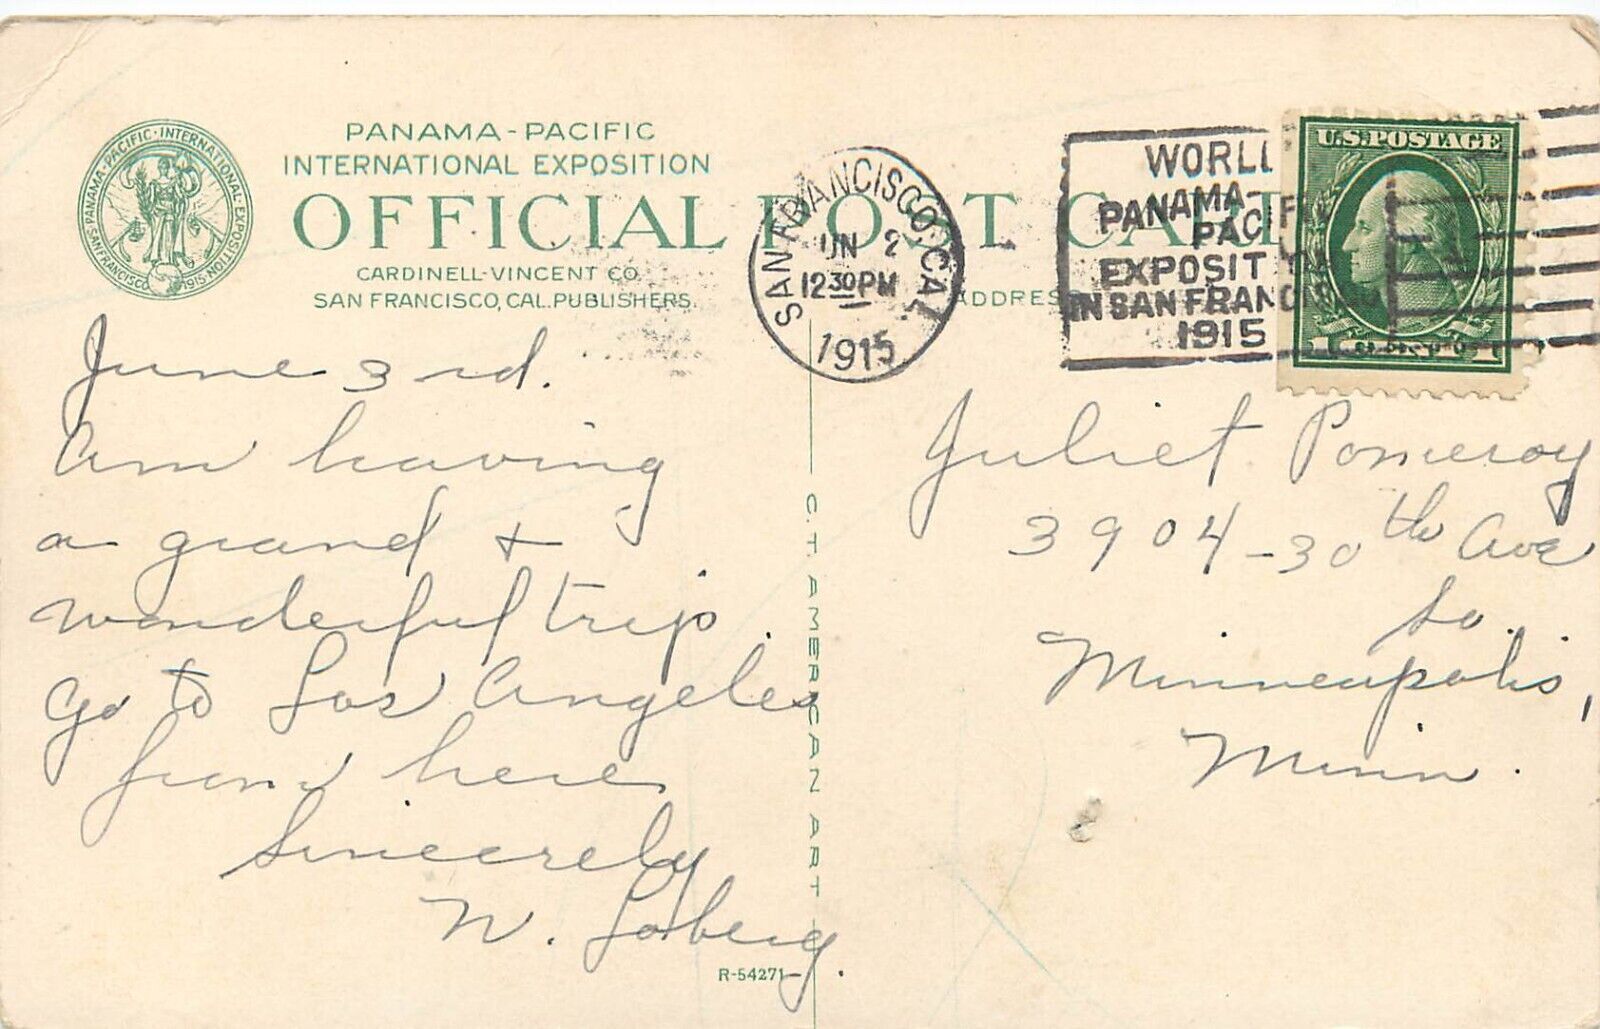 PANAMA-PACIFIC
INTERNATIONAL EXPOSITION
OFFICIAL POST CARD
CARDINELL-VINCENT CO.
SAN FRANCISCO, CAL. PUBLISHERS.
PANAMA-PACIFIC·INTERNATIONAL·EXPOSITION
SAN FRANCISCO 1915
SAN FRANCISCO, CAL.
JUN 2
12 30 PM
1915
WORLD
PANAMA-
PACIFIC
EXPOSITION
IN SAN FRANCISCO
1915
U.S. POSTAGE
ADDRESS
June 3rd.
Am having
a grand +
wonderful trip.
Go to Los Angeles
from here
Sincerely
N. Soberg.
Juliet Pomeroy
3904-30th Ave
So.
Minneapolis,
Minn.
C.T. AMERICAN ART
R-54271